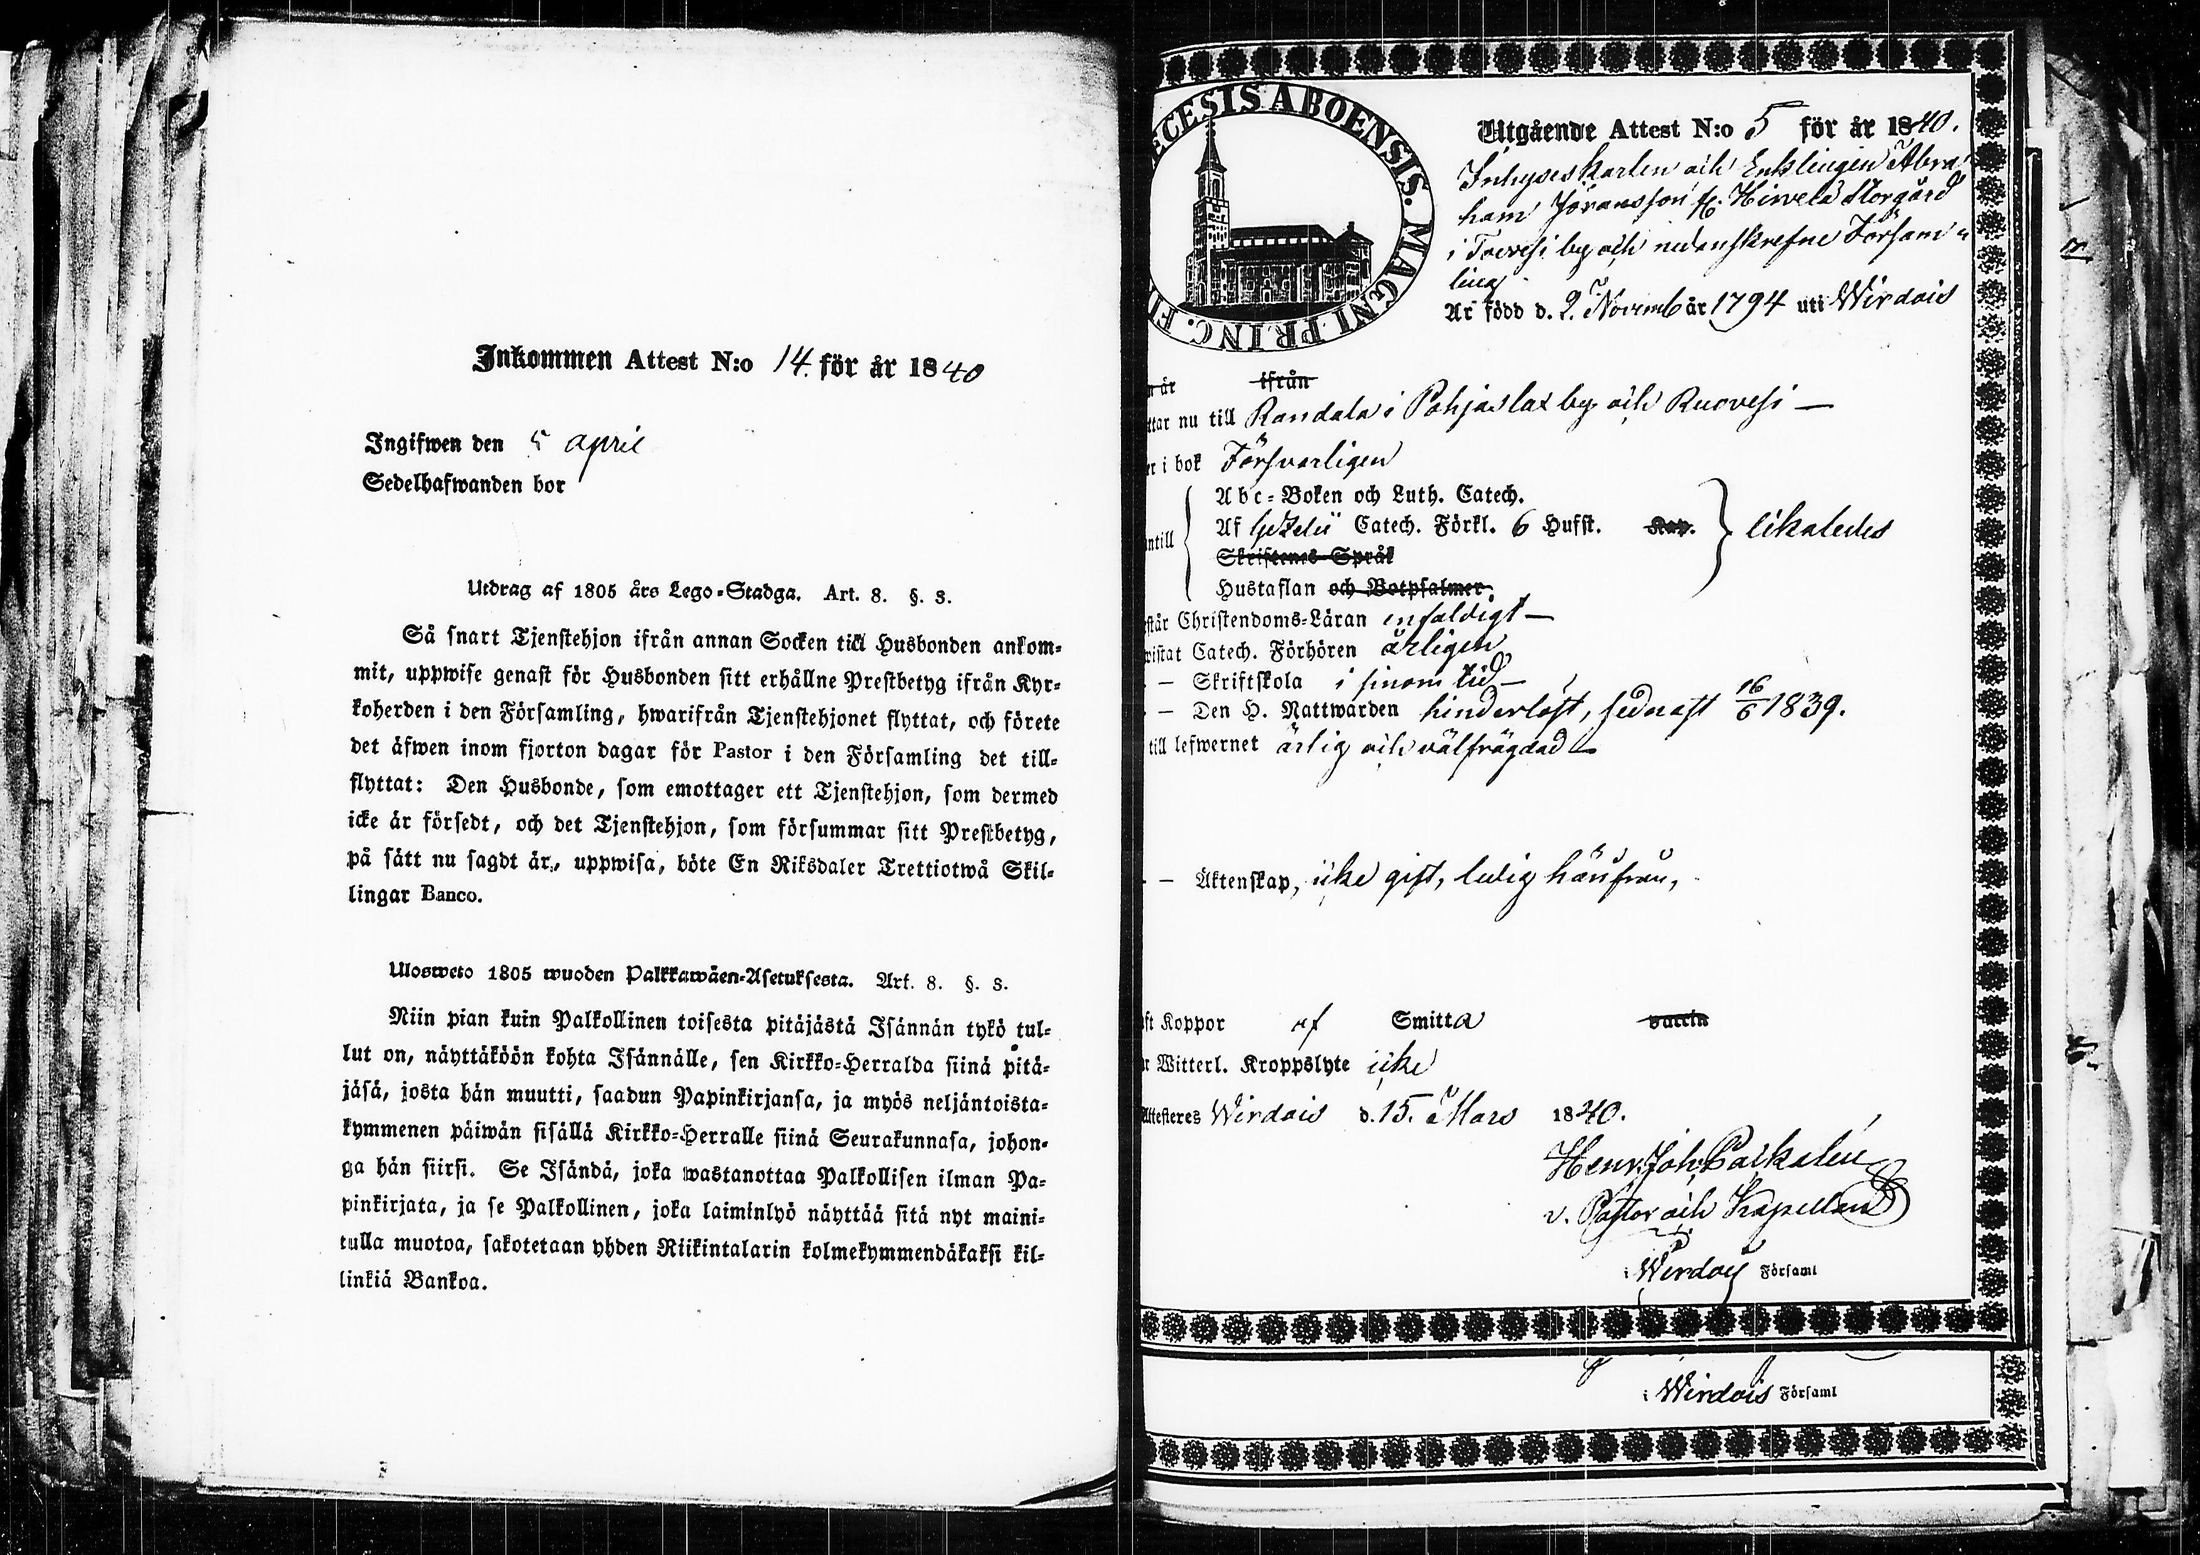 Inkommen Attest N:o 14. för år 1840
Ingifwen den 5 april
Sedelhafwanden bor
Utdrag af 1805 års Lego-Stadga. Art. 8. §. 3.
Så snart Tjenstehjon ifrån annan Socken till Husbonden ankom-
mit, uppwise genast för Husbonden sitt erhållne Prestbetyg ifrån Kyr-
koherden i den Församling, hwarifrån Tjenstehjonet flyttat, och förete
det äfwen inom fjorton dagar för Pastor i den Församling det till-
flyttat: Den Husbonde, som emottager ett Tjenstehjon, som dermed
icke är försedt, och det Tjenstehjon, som försummar sitt Prestbetyg,
på sätt nu sagdt är, uppwisa, böte En Riksdaler Trettiotwå Skil-
lingar Banco.
Ulosweto 1805 wuoden Palkkawäen-Asetuksesta. Art. 8. §. 3.
Niin pian kuin Palkollinen toisesta pitäjästä Isännän tykö tul-
lut on, näyttäköön kohta Isännälle, sen Kirkko-Herralda siinä pitä-
jäsä, josta hän muutti, saadun Papinkirjansa, ja myös neljäntoista-
kymmenen päiwän sisällä Kirkko-Herralle siinä Seurakunnasa, johon-
ga hän siirsi. Se Isändä, joka wastanottaa Palkollisen ilman Pa-
pinkirjata, ja se Palkollinen, joka laiminlyö näyttää sitä nyt maini-
tulla muotoa, sakotetaan yhden Riikintalarin kolmekymmendäkaksi kil-
linkiä Bankoa.
ECESIS ABOENSIS. MAGNI PRINC. FI
Utgående Attest N:o 5 för år 1840.
Inhyseskarlen och Enklingen Abra
ham Jöransson fr. Hirvelä Storgård
i Toivesi by och nedanskrefne Försam
ling
Är född d. 2. Novemb år 1794 uti Wirdois
n är ifrån
ttar nu till Randala i Pohjaslax by och Ruovesi —
er i bok Försvarligen
Abc-Boken och Luth. Catech.
antill Af Gezelii Catech. Förkl. 6 Hufst. Kap. likaledes
Skriftenes Språk
Hustaflan och Botpsalmer.
står Christendoms-Läran enfaldigt —
wistat Catech. Förhören ärligen,
— Skriftskola i sinom tid —
— Den H. Nattwarden hinderlöst, sednast 16/6 1839.
till lefwernet ärlig och välfrägdad —
— Äktenskap, icke gift, ledig härifrån,
ft Koppor af Smitta vaccin
r Witterl. Kroppslyte icke
Attesteres Wirdois d. 15. Mars 1840.
Henr. Joh.
v. Pastor och Kapellan
i Wirdois Församl
i Wirdois Församl